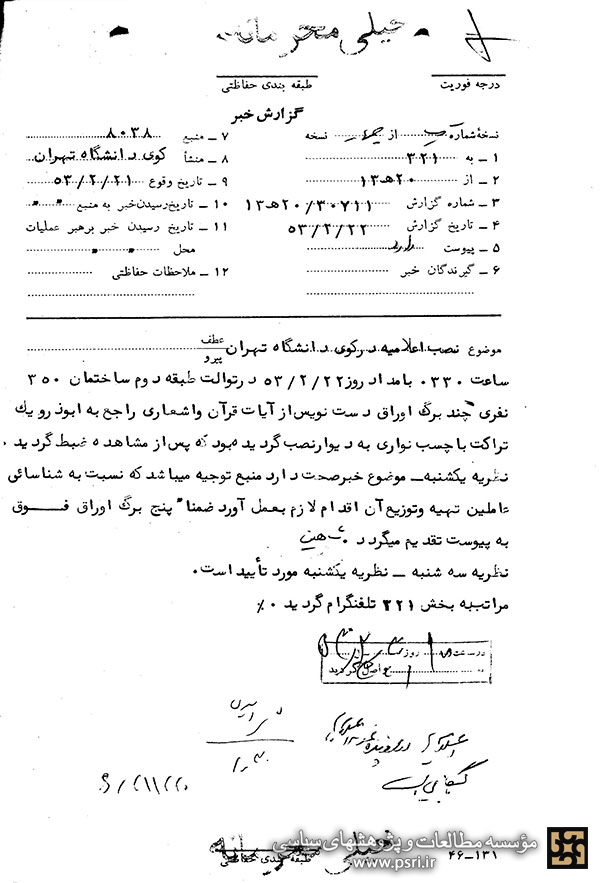 خیلی محرمانه
درجه فوریت
طبقه بندی حفاظتی
گزارش خبر
نسخه شماره از نسخه
۱ ـ به ۳۲۱
۲ ـ از ۲۰هـ۱۳
۳ ـ شماره گزارش ۲۰/۳۰۷۱۱هـ۱۳
۴ ـ تاریخ گزارش ۵۳/۲/۲۲
۵ ـ پیوست دارد
۶ ـ گیرندگان خبر
۷ ـ منبع ۸۰۳۸
۸ ـ منشأ کوی دانشگاه تهران
۹ ـ تاریخ وقوع ۵۳/۲/۲۱
۱۰ ـ تاریخ رسیدن خبر به منبع
۱۱ ـ تاریخ رسیدن خبر برهبر عملیات
محل
۱۲ ـ ملاحظات حفاظتی
موضوع نصب اعلامیه در کوی دانشگاه تهران عطف پیرو
ساعت ۰۳۳۰ بامداد روز ۵۳/۲/۲۲ در توالت طبقه دوم ساختمان ۳۵۰
نفری چند برگ اوراق دست نویس از آیات قرآن و اشعاری راجع به ابوذر و یك
تراکت با چسب نواری به دیوار نصب گردیده بود که پس از مشاهده ضبط گردید .
نظریه یکشنبه ـ موضوع خبر صحت دارد منبع توجیه میباشد که نسبت به شناسائی
عاملین تهیه و توزیع آن اقدام لازم بعمل آورد ضمناً پنج برگ اوراق فـــوق
به پیوست تقدیم میگردد . شاهین
نظریه سه شنبه ـ نظریه یکشنبه مورد تأیید است .
مراتب به بخش ۳۲۱ تلفنگرام گردید .٪
در ساعت روز
واصل گردید
خیلی محرمانه
طبقه بندی حفاظتی
۴۶-۱۳۱
مؤسسه مطالعات و پژوهشهای سیاسی
www.psri.ir